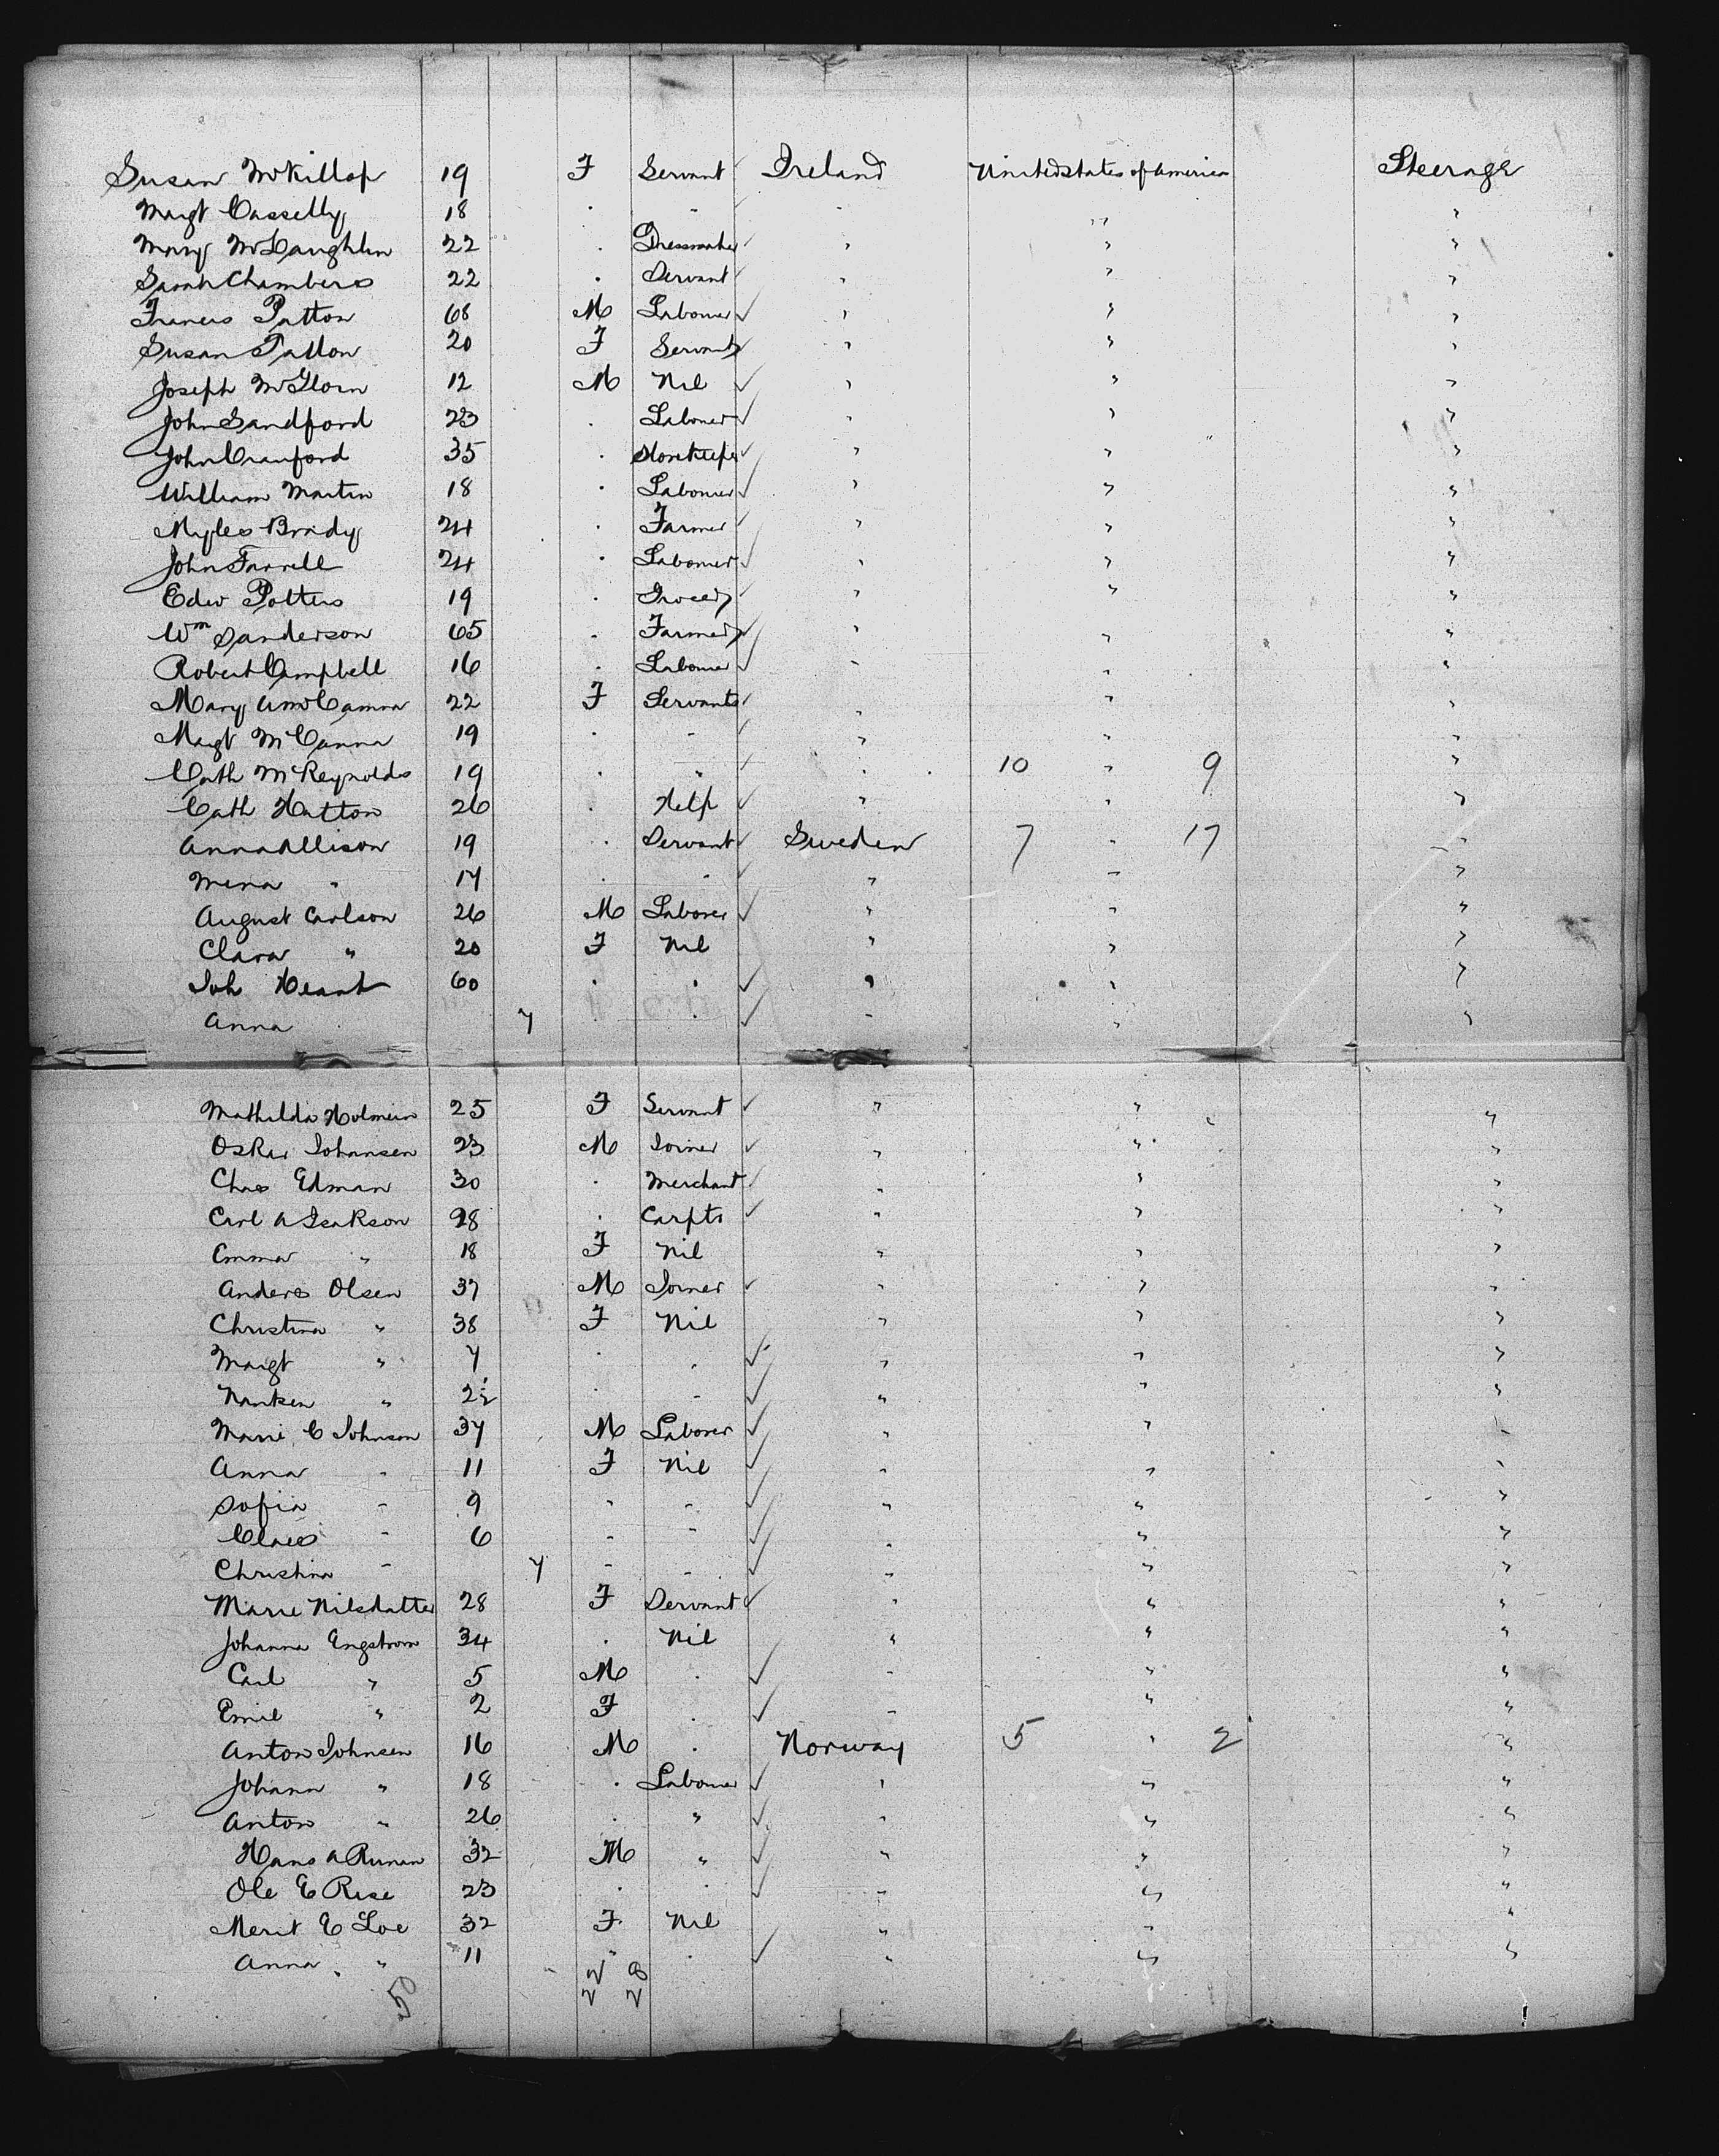 Susan McKillop 19 F Servant Ireland United States of America Steerage
Margt Casselly 18 " " " " "
Mary McLaughlin 22 " Dressmaker " " "
Sarah Chambers 22 " Servant " " "
Francis Patton 68 M Laborer " " "
Susan Patton 20 F Servant " " "
Joseph McGlorn 12 M Nil " " "
John Sandford 23 " Laborer " " "
John Crawford 35 " Storekeeper " " "
William Martin 18 " Laborer " " "
Myles Brady 24 " Farmer " " "
John Farrell 24 " Laborer " " "
Edw Potters 19 " Grocer " " "
Wm Sanderson 65 " Farmer " " "
Robert Campbell 16 " Laborer " " "
Mary A McCanna 22 F Servants " " "
Margt McCanna 19 " " " " "
Cath McReynolds 19 " " " 10 " 9 "
Cath Hatton 26 " Help " " "
Anna Allison 19 " Servant Sweden 7 " 17 "
Mena " 17 " " " " "
August Carlson 26 M Laborer " " "
Clara " 20 F Nil " " "
Joh 60 " " " " "
Anna 7 " " " " "
Mathilda 25 F Servant " " "
Oskar Johansen 23 M Joiner " " "
Chas Edman 30 " Merchant " " "
Carl A Isakson 28 " Carptr " " "
Emma " 18 F Nil " " "
Anders Olsen 37 M Joiner " " "
Christina " 38 F Nil " " "
Margt " 7 " " " " "
" 2½ " " " " "
Marie C Johnson 37 M Laborer " " "
Anna " 11 F Nil " " "
Sofia " 9 " " " " "
Claes " 6 " " " " "
Christina " 7 " " " " "
Marie Nilsdatter 28 F Servant " " "
Johanna Engstrom 34 " Nil " " "
Carl " 5 M " " " "
Emil " 2 F " " " "
Anton Johnsen 16 M " Norway 5 " 2 "
Johann " 18 " Laborer " " "
Anton " 26 " " " " "
Hans A 32 M " " " "
Ole E Rise 23 " " " " "
Merit E Loe 32 F Nil " " "
Anna " 11 " " " " "
50 22 28